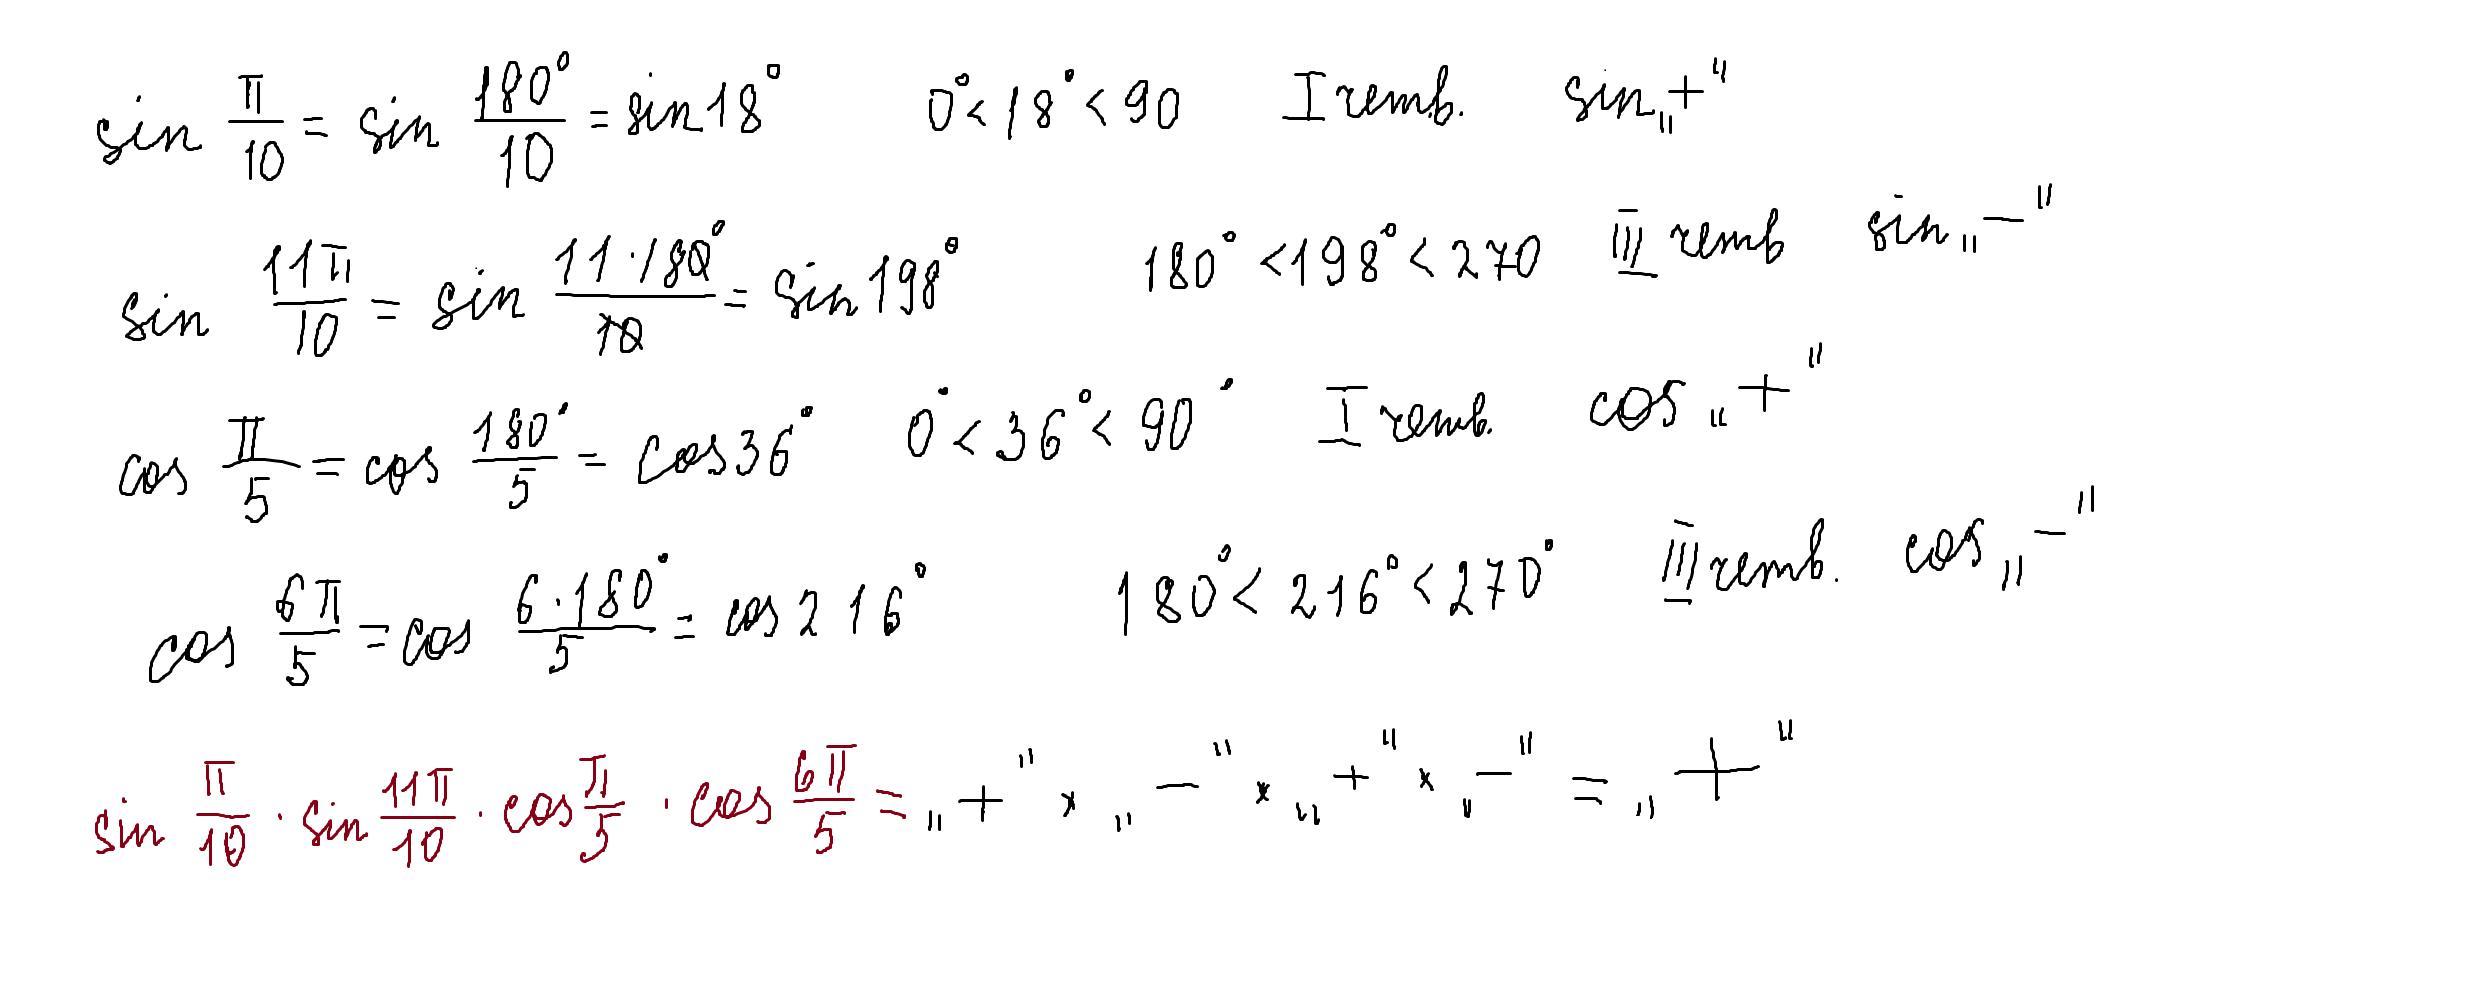 sin π/10 = sin 180°/10 = sin 18° 0° < 18° < 90 I четв. sin „+"
sin 11π/10 = sin 11·180°/10 = sin 198° 180° < 198° < 270 III четв sin „−"
cos π/5 = cos 180°/5 = cos 36° 0° < 36° < 90° I четв. cos „+"
cos 6π/5 = cos 6·180°/5 = cos 216° 180° < 216° < 270° III четв. cos „−"
sin π/10 · sin 11π/10 · cos π/5 · cos 6π/5 = „+" × „−" × „+" × „−" = „+"